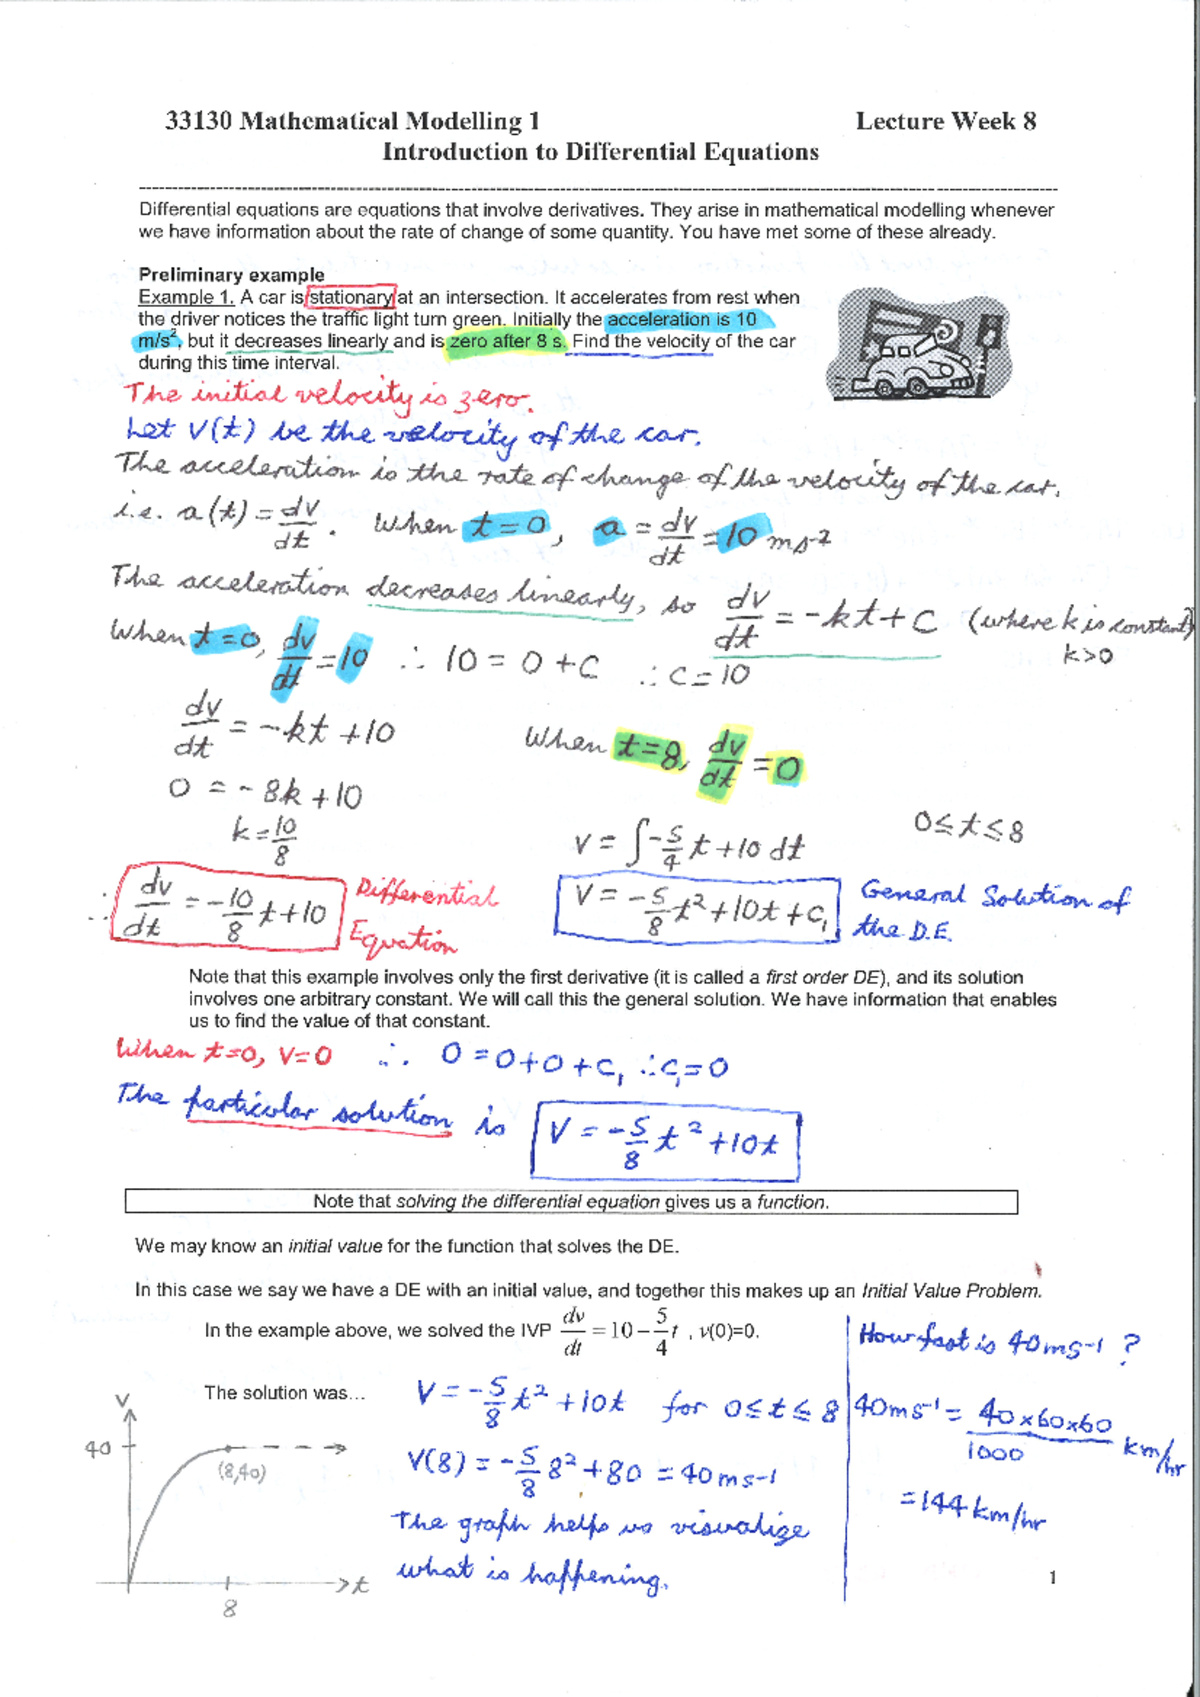 33130 Mathematical Modelling 1 Lecture Week 8
Introduction to Differential Equations
Differential equations are equations that involve derivatives. They arise in mathematical modelling whenever
we have information about the rate of change of some quantity. You have met some of these already.
Preliminary example
Example 1. A car is stationary at an intersection. It accelerates from rest when
the driver notices the traffic light turn green. Initially the acceleration is 10
m/s², but it decreases linearly and is zero after 8 s. Find the velocity of the car
during this time interval.
The initial velocity is zero.
Let V(t) be the velocity of the car.
The acceleration is the rate of change of the velocity of the car.
i.e. a(t) = dv/dt . When t=0, a = dv/dt = 10 ms-2
The acceleration decreases linearly, so dv/dt = -kt + C (where k is constant)
k>0
When t=0, dv/dt = 10 ∴ 10 = 0 + C ∴ C = 10
dv/dt = -kt + 10 When t=8, dv/dt = 0
0 = -8k + 10
k = 10/8 V = ∫ -5/4 t + 10 dt 0≤t≤8
∴ dv/dt = -10/8 t + 10 Differential Equation V = -5/8 t² + 10t + C₁ General Solution of the D.E.
Note that this example involves only the first derivative (it is called a first order DE), and its solution
involves one arbitrary constant. We will call this the general solution. We have information that enables
us to find the value of that constant.
When t=0, V=0 ∴ 0 = 0+0+C₁ ∴C₁=0
The particular solution is V = -5/8 t² + 10t
Note that solving the differential equation gives us a function.
We may know an initial value for the function that solves the DE.
In this case we say we have a DE with an initial value, and together this makes up an Initial Value Problem.
In the example above, we solved the IVP dv/dt = 10 - 5/4 t , v(0)=0.
The solution was... V = -5/8 t² + 10t for 0≤t≤8
V(8) = -5/8 8² + 80 = 40 ms-1
The graph helps us visualize
what is happening.
How fast is 40 ms-1 ?
40 ms-1 = 40x60x60/1000 km/hr
= 144 km/hr
V
40
(8,40)
t
8
1